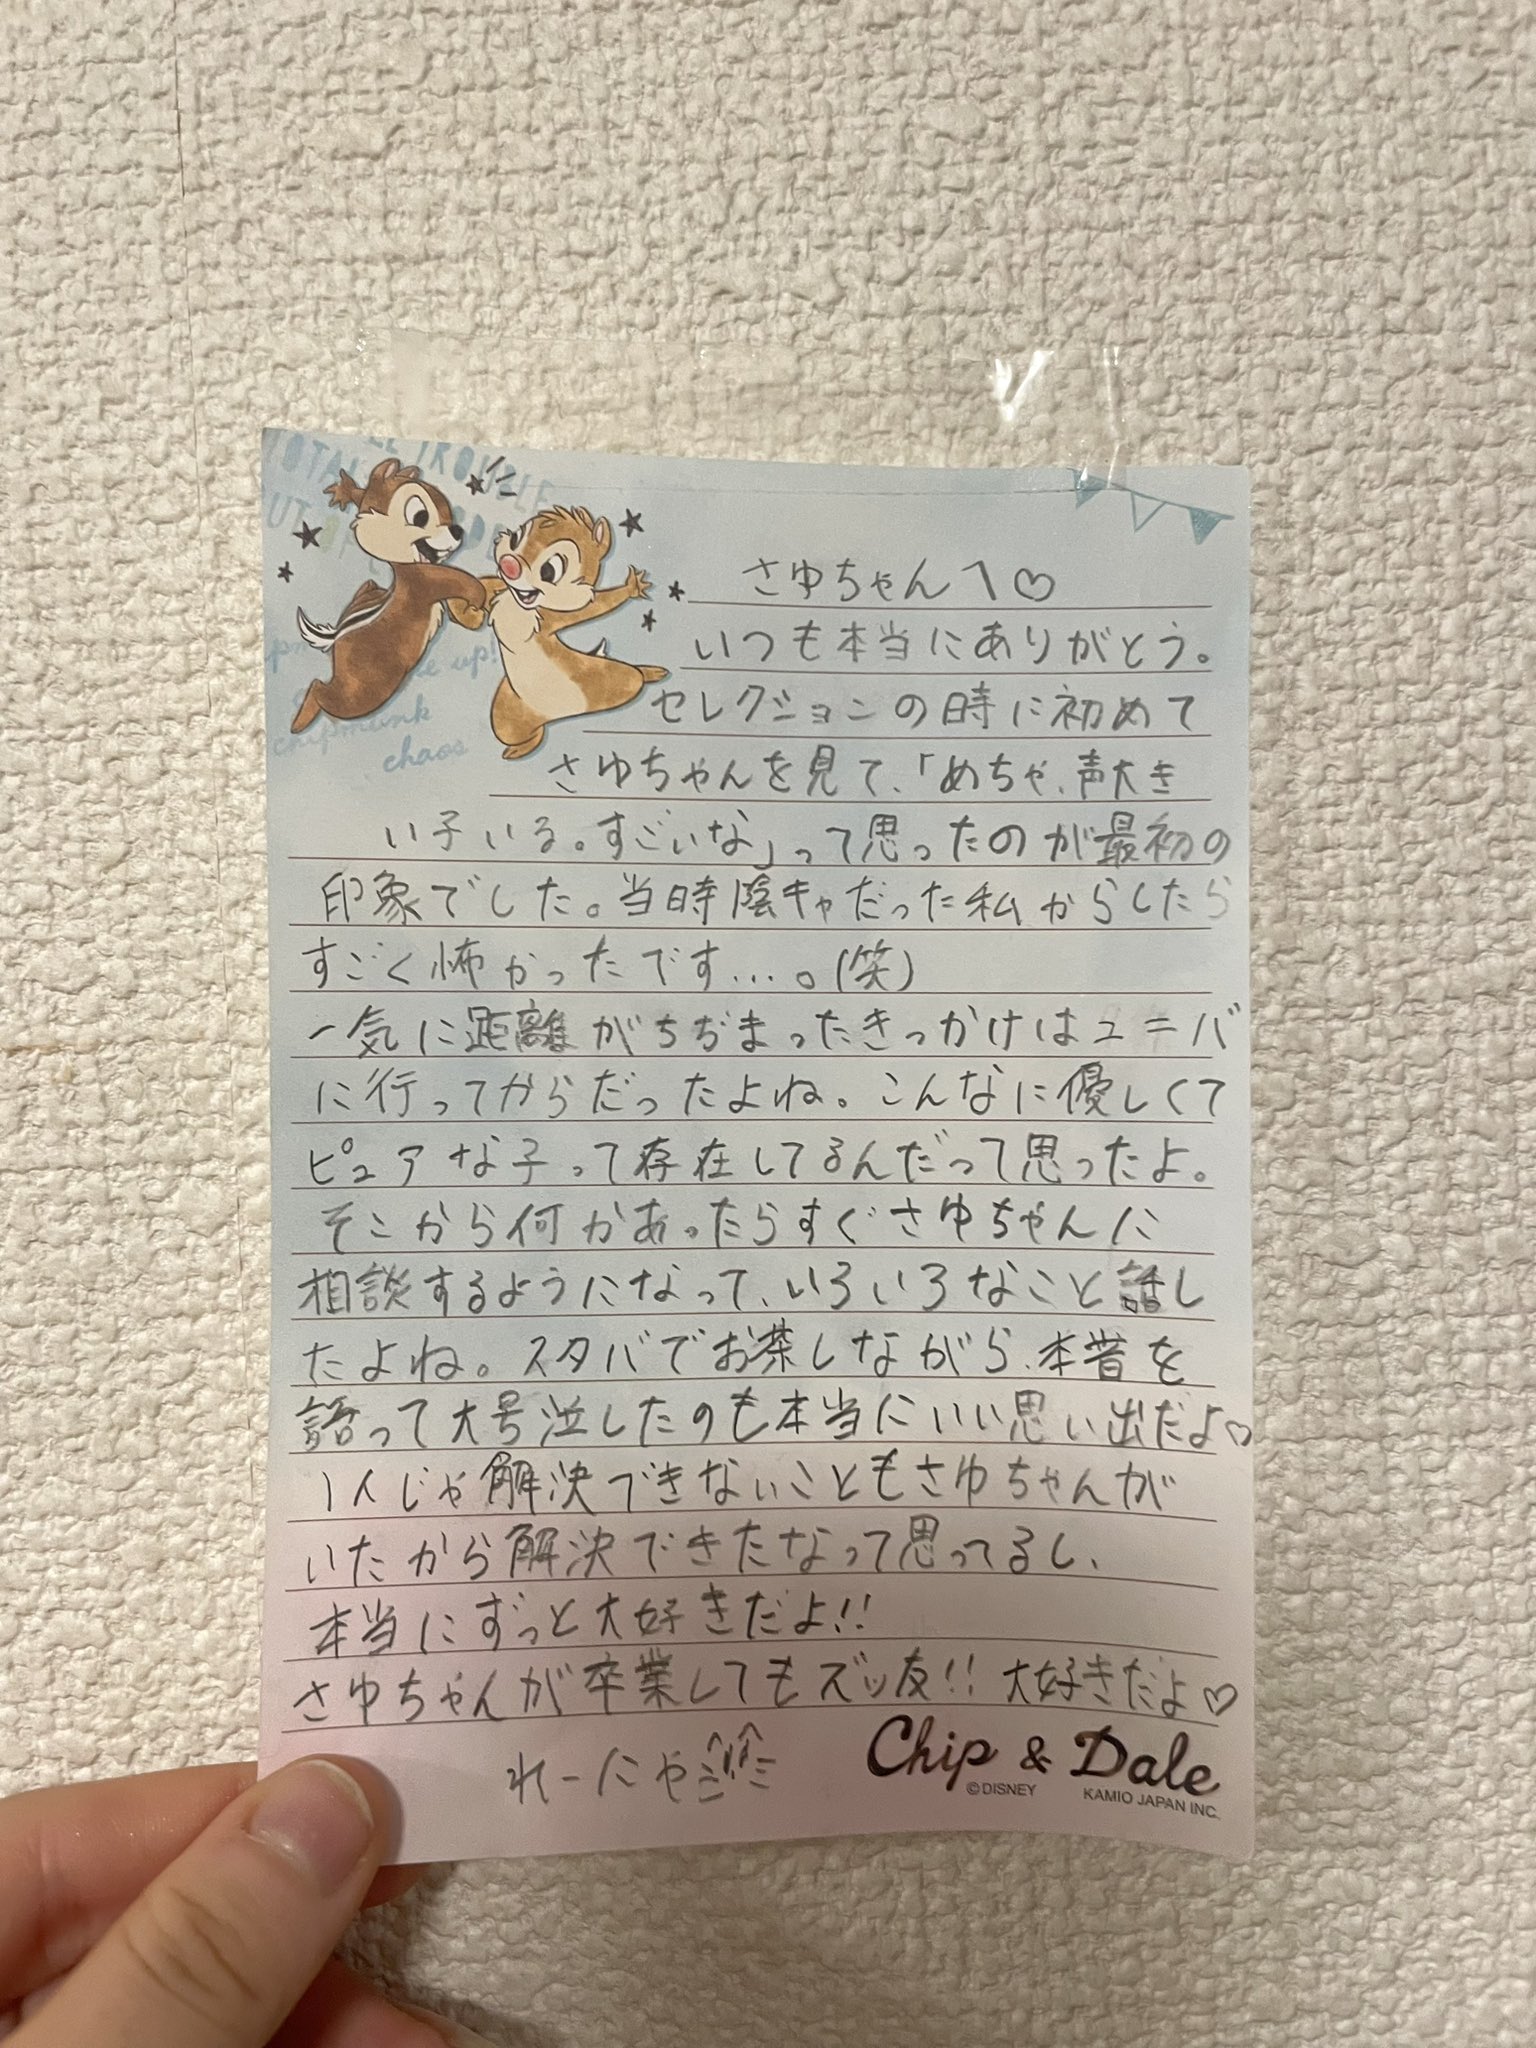 さゆちゃんへ♡
いつも本当にありがとう。
セレクションの時に初めて
さゆちゃんを見て、「めちゃ、声大き
い子いる。すごいな」って思ったのが最初の
印象でした。当時陰キャだった私からしたら
すごく怖かったです…。(笑)
一気に距離がちぢまったきっかけはユニバ
に行ってからだったよね。こんなに優しくて
ピュアな子って存在してるんだって思ったよ。
そこから何かあったらすぐさゆちゃんに
相談するようになって、いろいろなこと話し
たよね。スタバでお茶しながら、本音を
語って大号泣したのも本当にいい思い出だよ♡
1人じゃ解決できないこともさゆちゃんが
いたから解決できたなって思ってるし、
本当にずっと大好きだよ!!
さゆちゃんが卒業してもズッ友!! 大好きだよ♡
れーにゃ
Chip & Dale
©DISNEY KAMIO JAPAN INC.
chipmunk
chaos